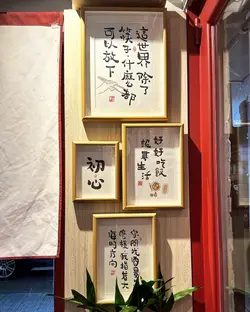 這世界 除了
筷子,什麼都
可以放下
好好吃飯
認真生活
初心
海的方向